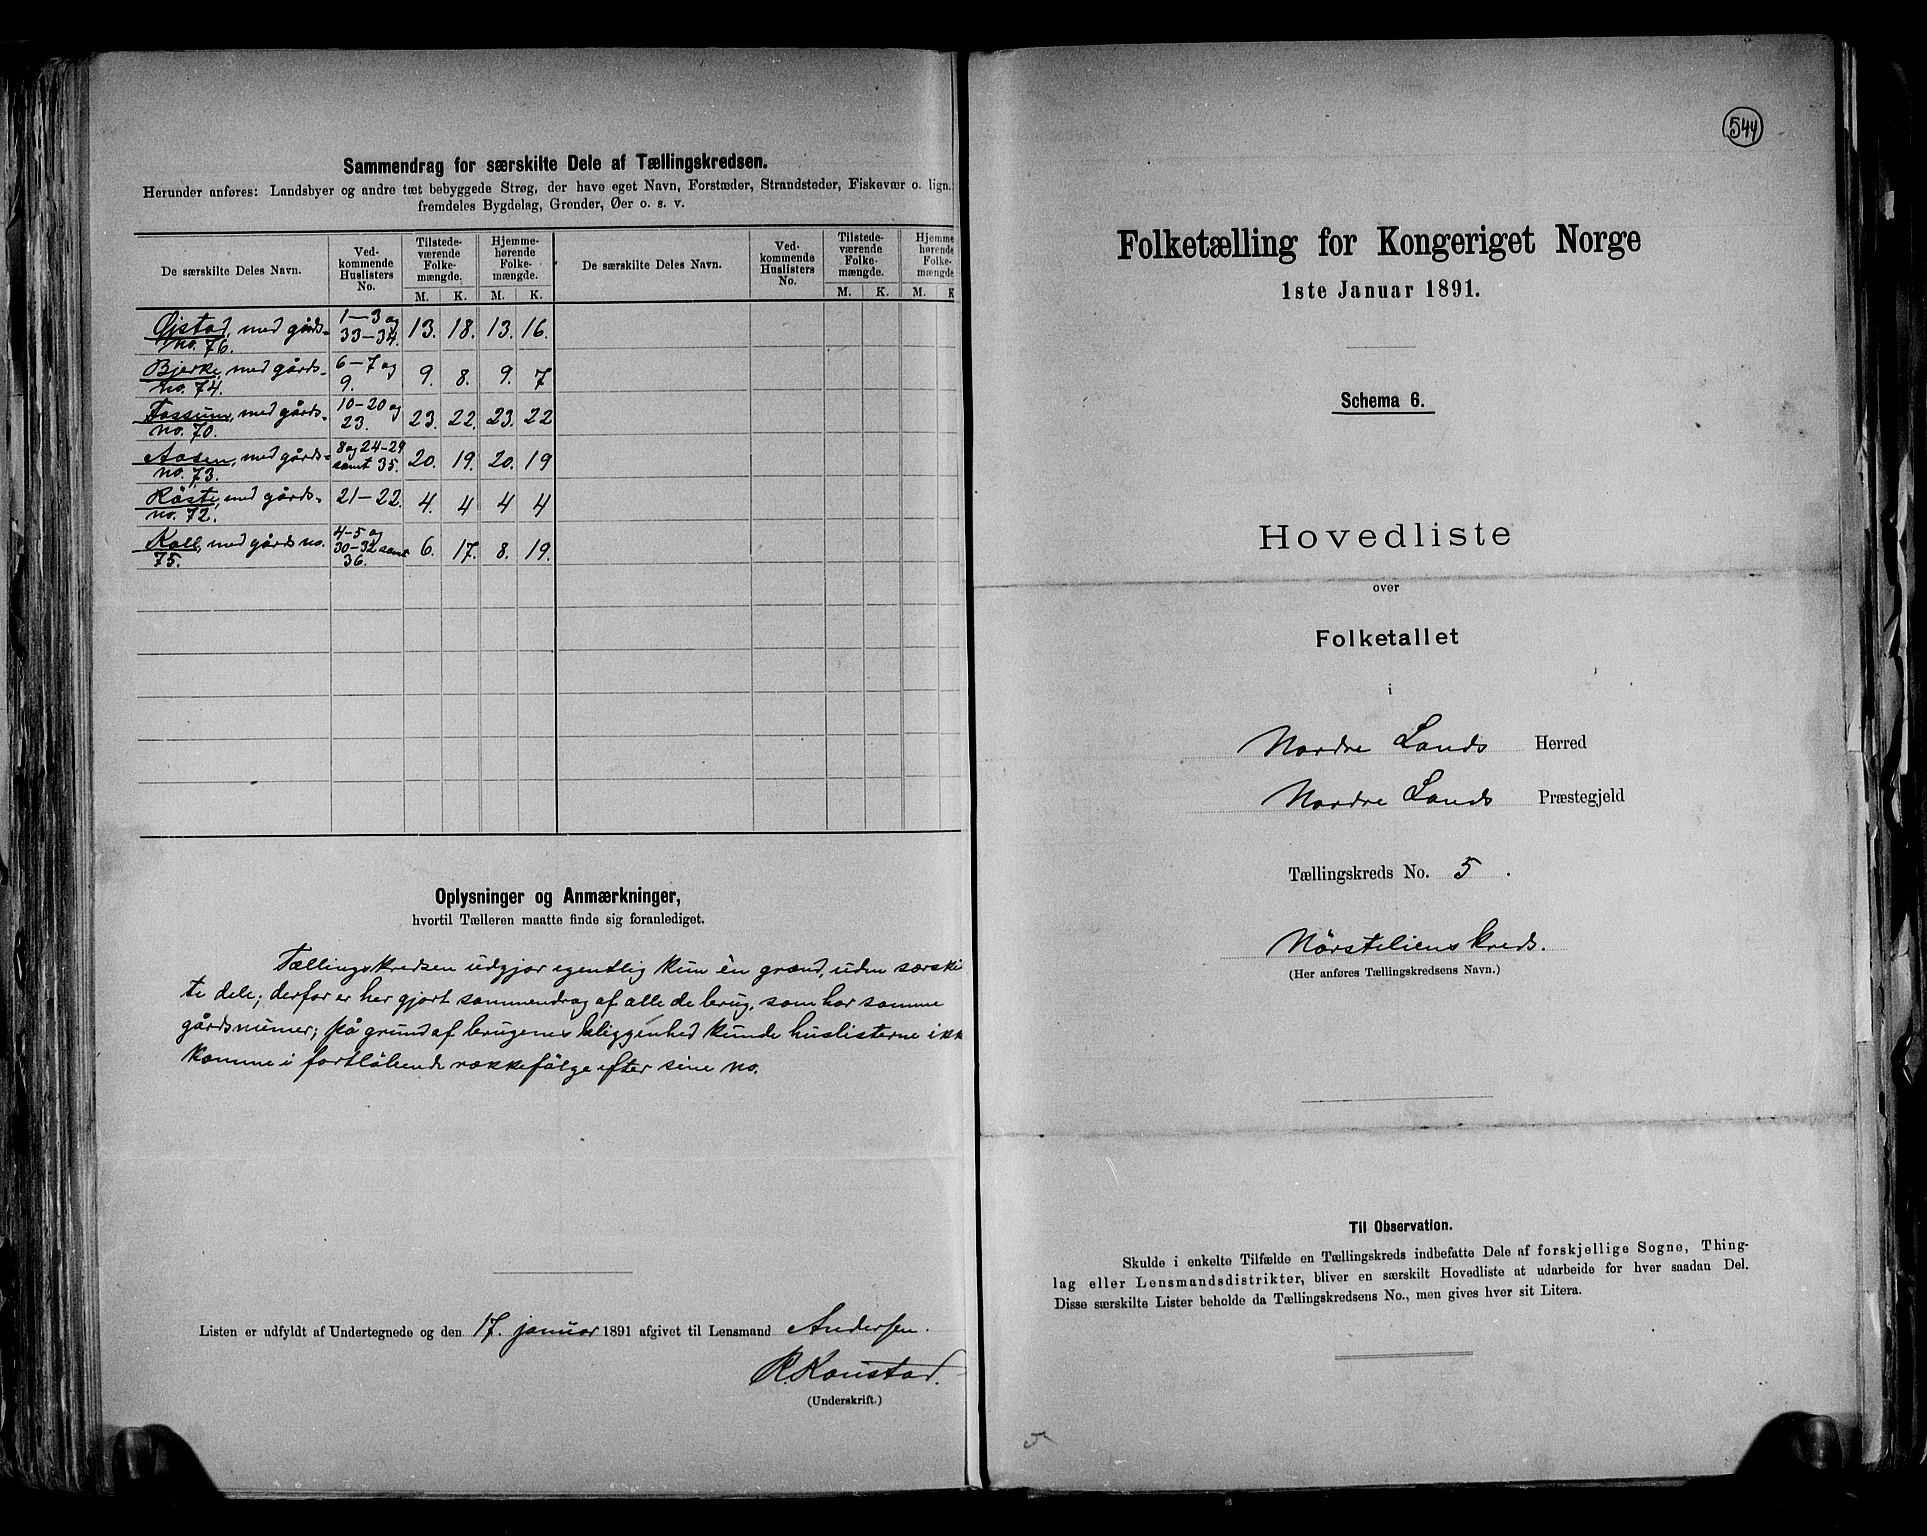 Sammendrag for særskilte Dele af Tællingskredsen.
Herunder anføres: Landsbyer og andre tæt bebyggede Strøg, der have eget Navn, Forstæder, Strandsteder, Fiskevær o. lign.
fremdeles Bygdelag, Grender, Øer o. s. v.
De særskilte Deles Navn. Ved-kommende Huslisters No. Tilstede-værende Folke-mængde. Hjemme-hørende Folke-mængde. De særskilte Deles Navn. Ved-kommende Huslisters No. Tilstede-værende Folke-mængde. Hjemme-hørende Folke-mængde.
M. K. M. K. M. K. M. K
Øistad, med gårds- 1–3 og 13. 18. 13. 16.
no. 76. 33–34.
Bjerke, med gårds- 6–7 og 9. 8. 9. 7
no. 74. 9.
Fossum, med gårds- 10–20 og 23. 22. 23. 22
no. 70. 23.
Aasen, med gårds- 8 og 24–29 20. 19. 20. 19
no. 73. samt 35.
Röste, med gårds- 21–22. 4. 4 4 4
no. 72.
Koll, med gårds no. 4–5 og 6. 17. 8. 19.
75. 30–32 samt
36.
Oplysninger og Anmærkninger,
hvortil Tælleren maatte finde sig foranlediget.
Tællingskredsen udgjør egentlig kun èn grænd, uden særskil
te dele; derfor er her gjort sammendrag af alle de brug, som har samme
gårdsnumer; på grund af brugenes beliggenhed kunde huslisterne ikk
komme i fortløbende rækkefølge efter sine no.
Listen er udfyldt af Undertegnede og den 17. januar 1891 afgivet til Lensmand Andersen.
R. Konstad.
(Underskrift.)
544
Folketælling for Kongeriget Norge
1ste Januar 1891.
Schema 6.
Hovedliste
over
Folketallet
i
Nordre Lands Herred
Nordre Lands Præstegjeld
Tællingskreds No. 5.
Nørsteliens kreds.
(Her anføres Tællingskredsens Navn.)
Til Observation.
Skulde i enkelte Tilfælde en Tællingskreds indbefatte Dele af forskjellige Sogne, Thing-
lag eller Lensmandsdistrikter, bliver en særskilt Hovedliste at udarbeide for hver saadan Del.
Disse særskilte Lister beholde da Tællingskredsens No., men gives hver sit Litera.